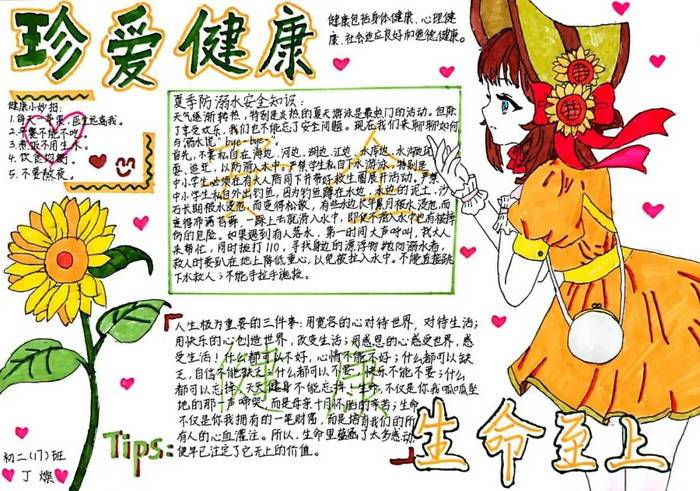 珍爱健康
健康包括身体健康、心理健
康、社会适应良好和道德健康。
健康小妙招:
1.每天一苹果,医生远离我。
2.早餐不能不吃
3.煮饭不用生水
4.饮食均衡
5.不要熬夜。
夏季防溺水安全知识:
天气逐渐转热,特别是炎热的夏天游泳是最热门的活动。但除
了享受欢乐,我们也不能忘了安全问题。现在我们来聊聊如何
与溺水说"bye-bye"
首先,不要私自在海边、河边、湖边、江边、水库边、水沟边
、池边,以防滑入水中。严禁学生私自下水游泳。特别是
中小学生必须在有大人陪同下并带好救生圈展开活动。严禁
中小学生私自外出钓鱼,因为钓鱼蹲在水边,水边的泥土、沙
石长期被水浸泡,而变得松散,有些水边长年累月被水浸泡,而
重得布满苔藓,一踩上去就滑入水中,即使不滑入水中也有被摔
伤的危险。如果遇到有人落水,第一时间大声呼叫,找大人
来帮忙,同时拨打110,寻找身边的漂浮物抛向溺水者,
救人时要趴在地上降低重心,以免被拉入水中。不能直接跳
下水救人;不能手拉手施救。
人生极为重要的三件事:用宽容的心对待世界,对待生活;
用快乐的心创造世界,改变生活;用感恩的心感受世界,感
受生活!什么都可以不好,心情不能不好;什么都可以缺
乏,自信不能缺乏;什么都可以不要,快乐不能不要;什么
都可以忘掉,天天健身不能忘掉!生命,不仅是你我呱呱坠
地的那一声啼哭,而是母亲十月怀胎的辛苦;生命
不仅是你我拥有的一笔财富,而是诸多我们的所
有人的心血灌注。所以,生命里蕴涵了太多感动
使早已注定了它无上的价值。
健康
Tips:
生命至上
初二(17)班
丁燦